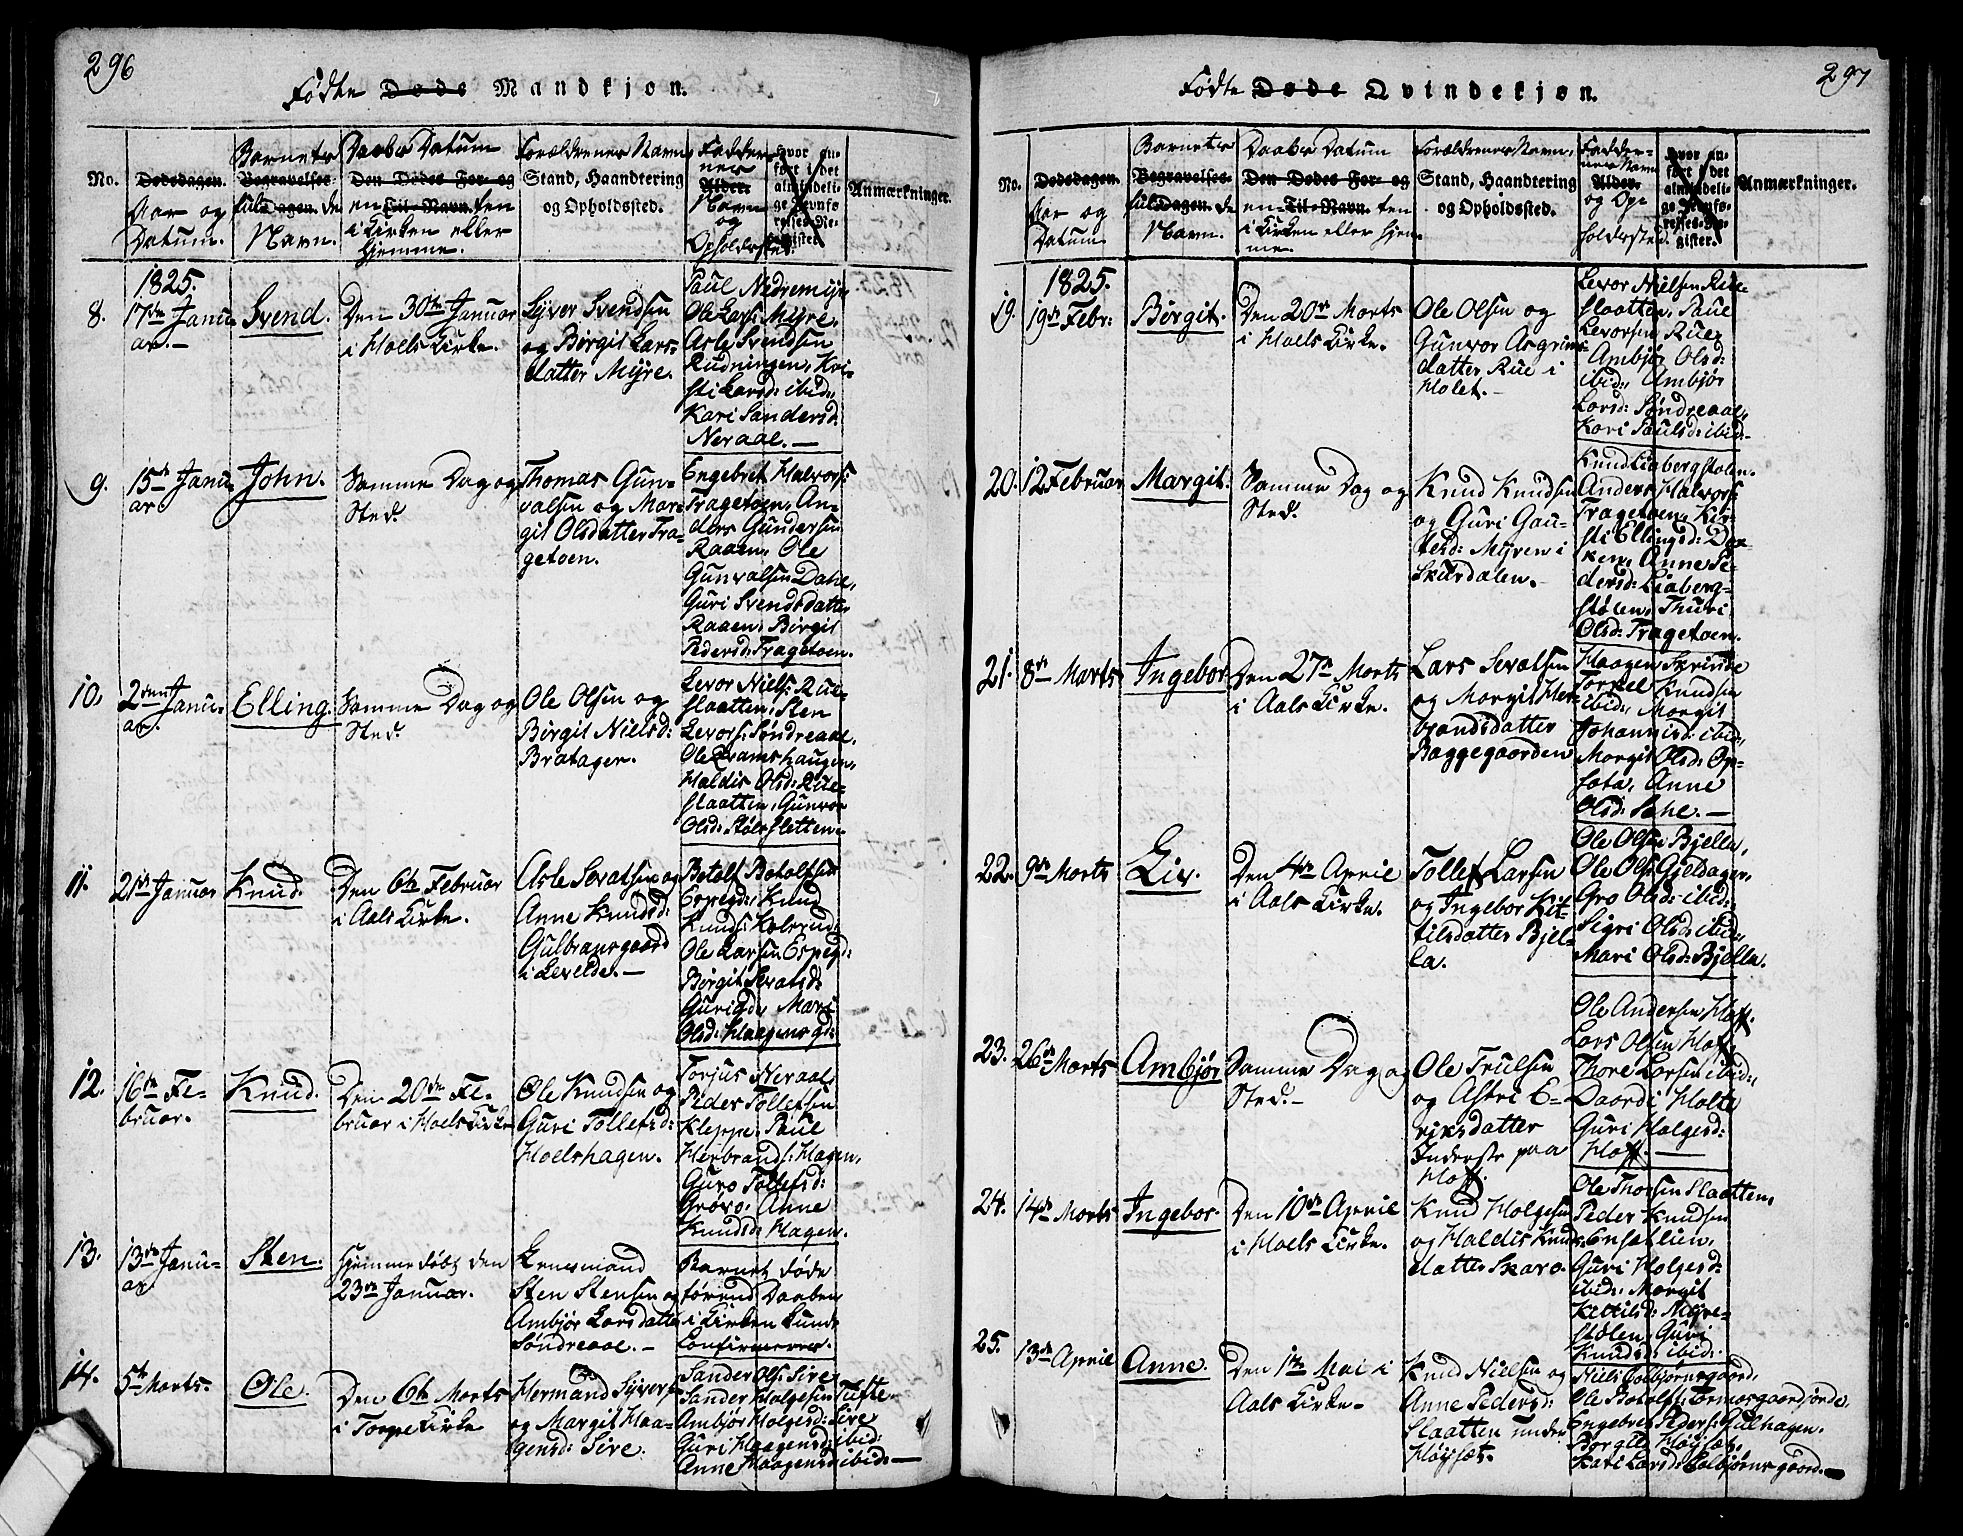 296
Fødte Døde Mandkjøn.
No.
Dødsdagen.
Aar og
Datum.
Barnets
Begravelses-
fulde Dagen.
Navn.
Daabs Datum
Den Dødes For- og
enten Til-Navn.
i Kirken eller
Hjemme.
Forældrenes Navn,
Stand, Haandtering
og Opholdssted.
Faddernes
Alder.
Navn
og
Opholdssted.
Hvor an-
ført i det
almindeli-
ge Jevnfø-
relses-Re-
gister.
Anmærkninger.
1825.
8.
17de Janu-
ar.-
Svend.
Den 30te Januar
i Hoels Kirke.
Syver Svendsen
og Børgit Lars-
datter Myre.
Paul Nedremyr,
Ole Lars: Myre,
Asle Svendsen
Rudningen, Kri-
sti Larsd: ibid:,
Kari Sandersd:
Neraal.
9.
15de Janu-
ar.
John.
Samme Dag og
Sted.
Thomas Gun-
valsen og Mar-
git Olsdatter Tra-
getoen.
Engebret Halvors:
Tragetoen, An-
ders Gundersen
Raaen, Ole
Gunvalsen Dahl,
Guri Svendsdatter
Raaen, Børgit
Pedersd: Tragetoen.
10.
2den Janu-
ar.
Elling.
Samme Dag og
Sted.
Ole Olsen og
Børgit Nielsd:
Bratager.
Levor Niels: Rue-
slaatten, Sten
Levors: Søndreaal,
Ole Bramshaugen,
Haldis Olsd: Rue-
slaatten, Gunvor
Olsd: Stølsletten
11.
21de Januar
Knud.
Den 6te Februar
i Aals Kirke.
Asle Sevatsen og
Anne Knudsd:
Gulbransgaard
i Levelde.
Botolf Botolfsen
Espegd:, Knud
Knuds: Kolsrud:
Ole Larsen Espegd:
Børgit Sevatsd:
Guri Gd:, Mari
Olsd: Haagensgd:
12.
16de Fe-
bruar.
Knud.
Den 20de Fe-
bruar i Hoels Kirke
Ole Knudsen og
Guri Tollefsd:
Hoelshagen.
Torjus Neraal,
Peder Tollefsen
Kleppe, Paul
Herbrands: Hagen,
Guro Tollefsd:
Grøvo, Anne
Knudsd: Hagen.
13.
13de Janu-
ar
Sten.
Hjemmedøbt den
23de Januar.
Lensmand
Sten Stensen og
Ambjør Larsdatter
Søndreaal.
Barnet døde
førend Daaben
i Kirken kunde
Confirmeres.
14.
5te Marts.
Ole.
Den 6te Marts
i Torpe Kirke
Hermand Syvers:
og Margit Haa-
gensd: Sire.
Sander Ols: Sire
Sander Holgesen Tufte
Ambjør Holgesd: Sire
Guri Haagensd: ibid:
Anne Haagensd: ibid:
297
Fødte Døde Qvindekjøn.
No.
Dødsdagen.
Aar og
Datum.
Barnets
Begravelses-
fulde Dagen.
Navn.
Daabs Datum
Den Dødes For- og
enten Til-Navn.
i Kirken eller Hjem-
me.
Forældrenes Navn,
Stand, Haandtering
og Opholdssted.
Fadder-
nes Navn
Alder.
og Op-
holdssted.
Hvor an-
ført i det
almindeli-
ge Jevnfø-
relses-Re-
gister.
Anmærkninger.
1825.
19.
19de Febr:
Børgit.
Den 20de Marts
i Hoels Kirke.
Ole Olsen og
Gunvor Asgrims-
datter Rue i
Holet.
Levor Nielsen Rue-
slaatten, Paul
Levorsen Rue,
Ambjør Olsd:
ibid:, Ambjør
Larsd: Søndreaal,
Kari Paulsd: ibid:
20.
12 Februar
Margit.
Samme Dag og
Sted.
Knud Knudsen
og Guri Gau-
tesd: Myren i
Skurdalen.
Knud Liabergstølen.
Anders Halvors:
Tragetoen, Kir-
sti Ellingsd: Døk-
ken, Anne Pe-
dersd: Liaberg-
stølen, Thuri
Olsd: Tragetoen.
21.
8de Marts
Ingebor
Den 27de Marts
i Aals Kirke.
Lars Sevatsen
og Margit Her-
brandsdatter
Baggegaarden
Haagen Skrinde
Torkel Knudsen
ibid:, Margit
Johannisd: ibid:,
Margit Olsd: Op-
sata, Anne
Olsd: Sehe.
22.
9de Marts
Liv.
Den 4de April
i Aals Kirke.
Tollef Larsen
og Ingebor Kit-
tilsdatter Bjel-
la.
Ole Olsen Bjella,
Ole Ols: Gjeldager,
Gro Olsd: ibid:
Sigri Olsd: ibid:,
Mari Olsd: Bjella.
23.
26de Marts
Ambjør
Samme Dag og
Sted.
Ole Trulsen
og Astri E-
riksdatter
Inderste paa
Hoff.
Ole Andersen Hoff.
Lars Olsen Hoff
Thore Larsen ibid:,
Daardi Holte
Guri Holgesd:
Hoff.
24.
14de Marts
Ingebor.
Den 10de April
i Hoels Kirke.
Knud Holgesen
og Haldis Knuds-
datter Skaro
Ole Thorsen Slaatten,
Peder Knudsen
Ensatlien,
Guri Holgesd:
ibid: Margit
Kittilsd: Myre-
stølen, Guri
Knudsd: ibid:
25.
13de April
Anne.
Den 1ste Mai i
Aals Kirke
Knud Nielsen og
Anne Pedersd:
Slaatten under
Høyset.
Niels Colbjørnsgaard,
Ole Botolfs: Tormosgaardjorde,
Engebret Peders: Gulhagen.
Borgild Høyset,
Kari Larsd: Colbjørnsgaard.